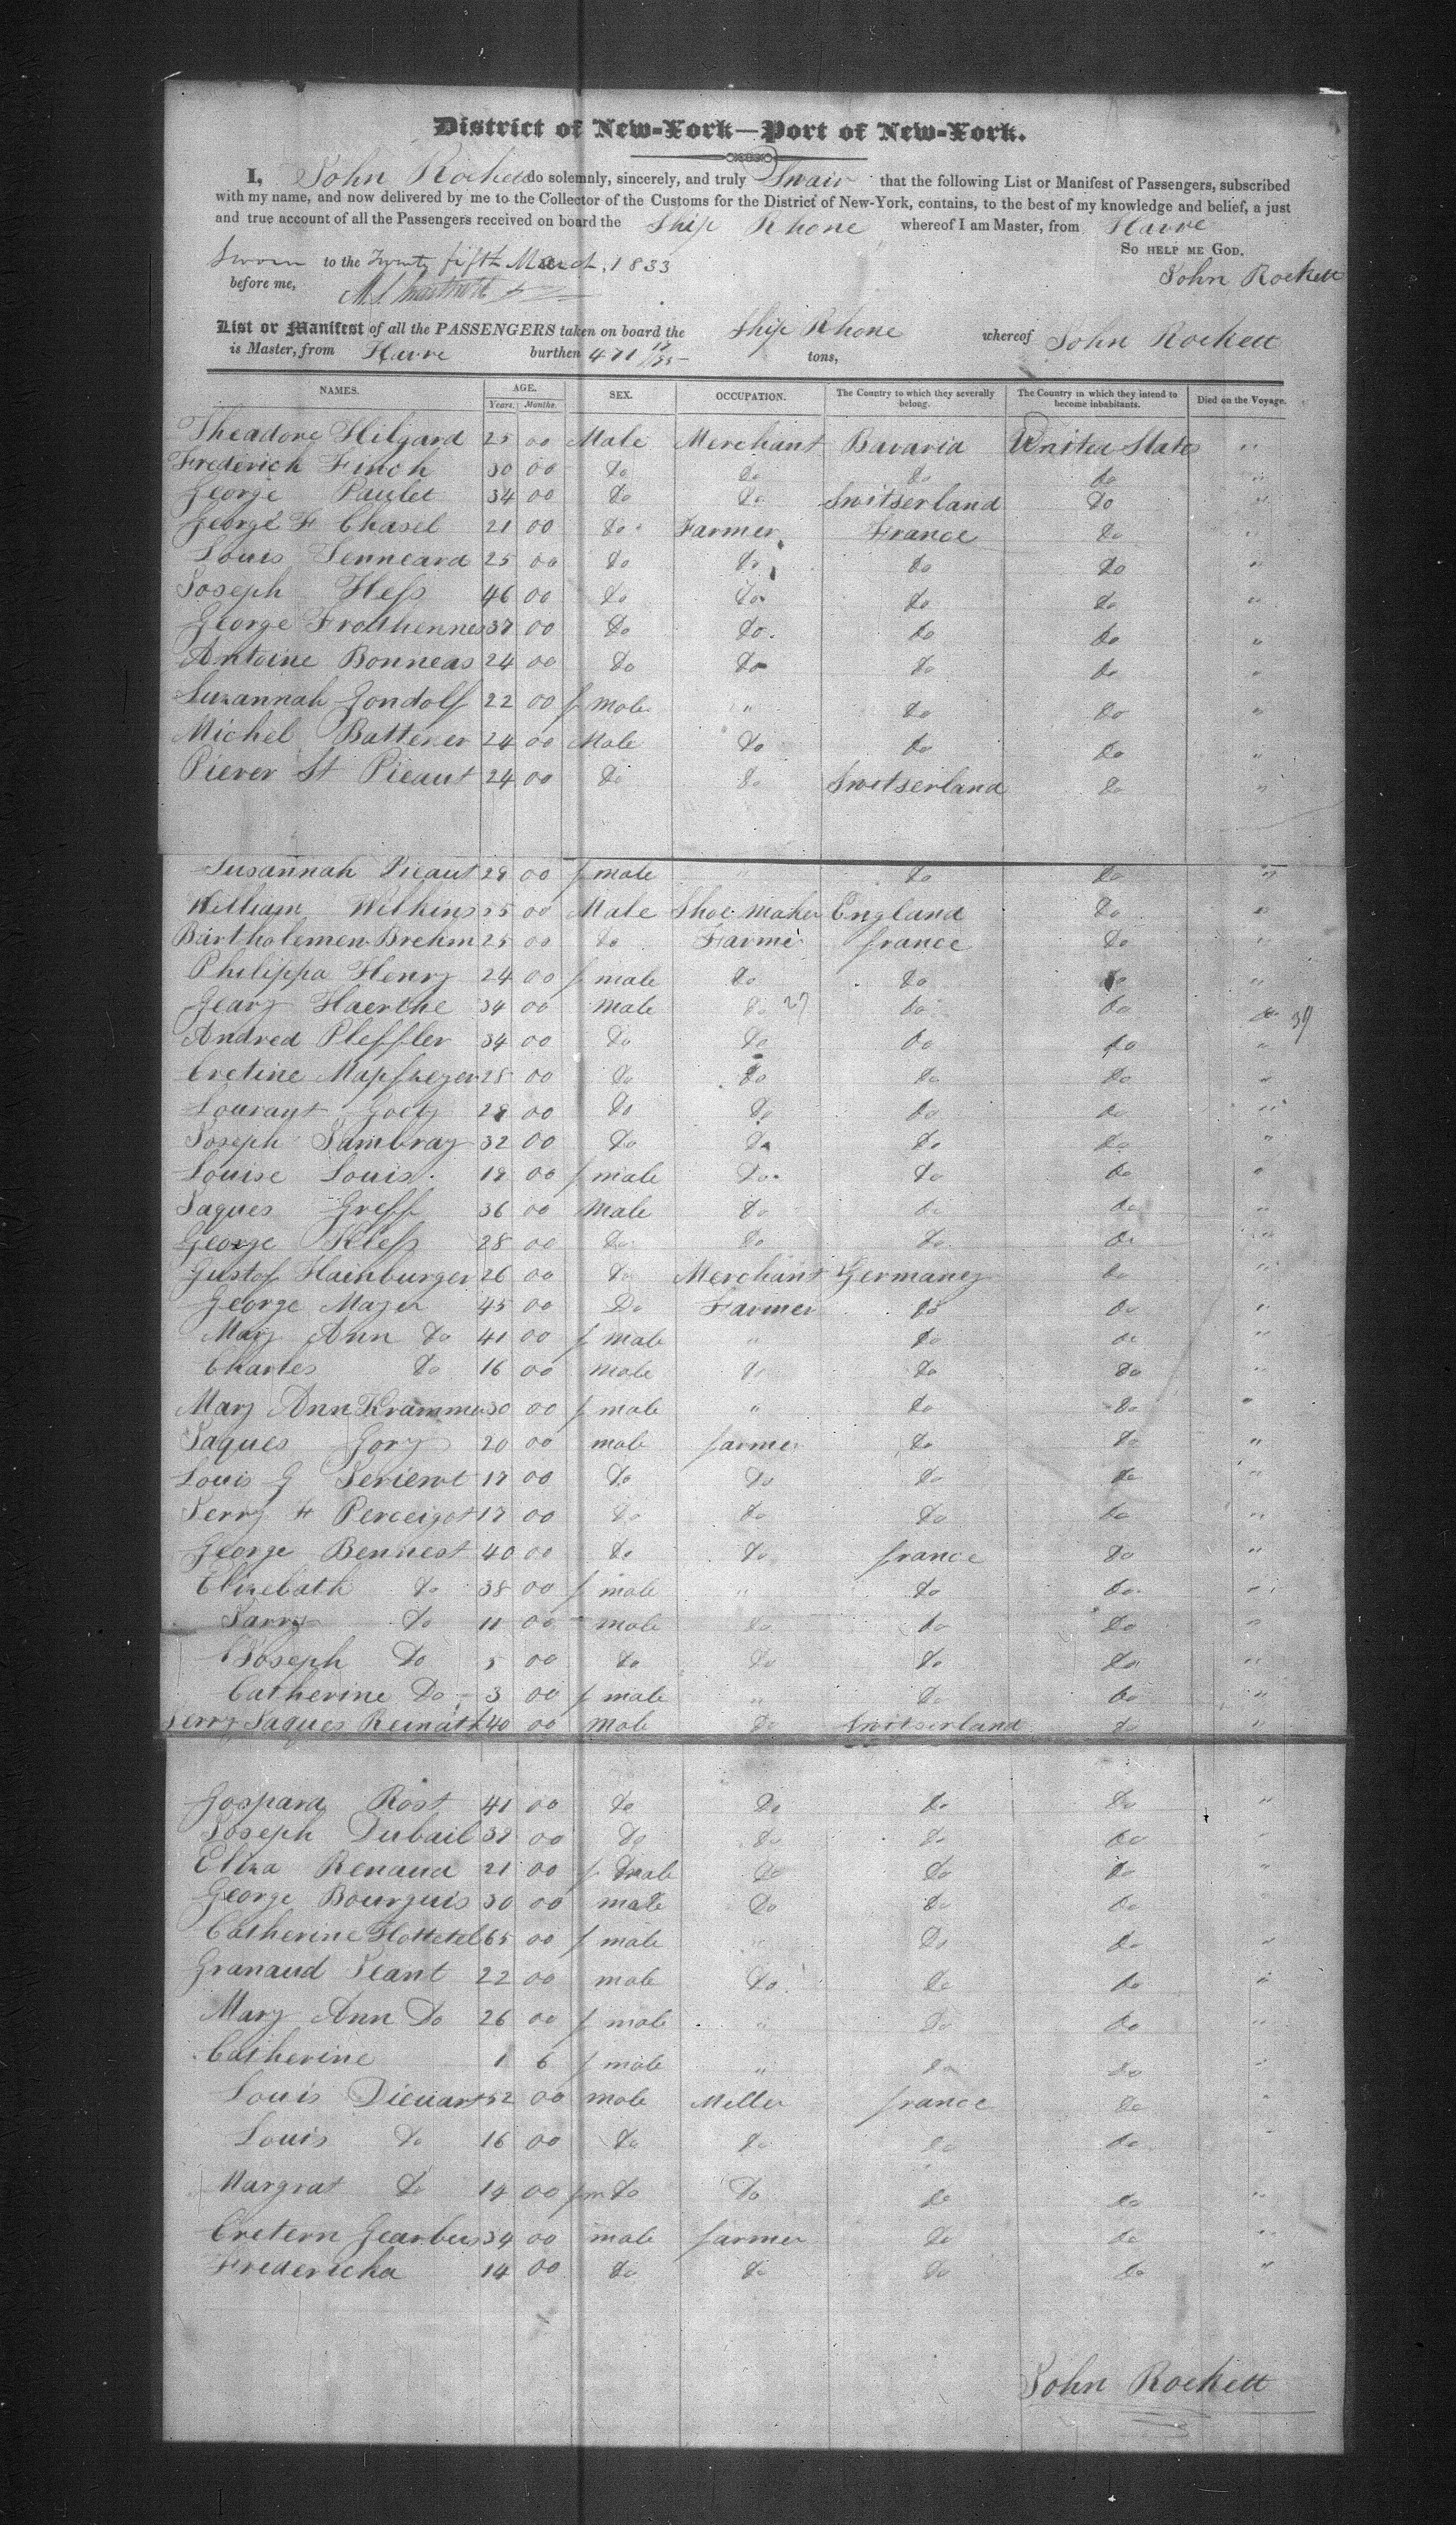 District of New-York—Port of New-York.
I, John Rockett do solemnly, sincerely, and truly Swair that the following List or Manifest of Passengers, subscribed
with my name, and now delivered by me to the Collector of the Customs for the District of New-York, contains, to the best of my knowledge and belief, a just
and true account of all the Passengers received on board the Ship Rhone whereof I am Master, from Havre
So help me God.
Sworn to the Twenty fifth March, 1833 John Rockett
before me,
List or Manifest of all the PASSENGERS taken on board the Ship Rhone whereof John Rockett
is Master, from Havre burthen 471 tons,
NAMES. AGE. SEX. OCCUPATION. The Country to which they severally belong. The Country in which they intend to become inhabitants. Died on the Voyage.
Years. Months.
Theadore Hilgard 25 00 Male Merchant Bavaria United States "
Frederich Finch 30 00 Do Do Do Do "
George Paulet 34 00 Do Do Switserland Do "
George F Chasel 21 00 Do Farmer France Do "
Louis Jenneard 25 00 Do Do Do Do "
Joseph Hess 46 00 Do Do Do Do "
George 37 00 Do Do Do Do "
Antoine Bonneas 24 00 Do Do Do Do "
Suzannah Gondolf 22 00 f male " Do Do "
Michel Battener 24 00 Male Do Do Do "
Piever St Pieaut 24 00 Do Do Switserland Do "
Susannah Pieaut 28 00 f male " Do Do "
William Wilkins 35 00 Male Shoe Maker England Do "
Bartholemew Brehm 25 00 Do Farmer france Do "
Philippa Henry 24 00 f male Do Do Do "
Gearg Haerthe 34 00 male Do 27 Do Do 39
Andred Pleffler 34 00 Do Do Do Do "
Cretine 28 00 Do Do Do Do "
Lourant Goetz 28 00 Do Do Do Do "
Joseph Sambray 32 00 Do Do Do Do "
Louise Louis 19 00 f male Do Do Do "
Jaques Greff 36 00 Male Do Do Do "
George Kless 28 00 Do Do Do Do "
Gustof Hainburger 26 00 Do Merchant Germaney Do "
George Mazer 45 00 Do Farmer Do Do "
Mary Ann Do 41 00 f male " Do Do "
Charles Do 16 00 male Do Do Do "
Mary Ann Krammer 30 00 f male " Do Do "
Jaques Gory 20 00 male farmer Do Do "
Louis G 17 00 Do Do Do Do "
Jerry F Perceigot 17 00 Do Do Do Do "
George Bennest 40 00 Do Do france Do "
Elizebath Do 38 00 f male " Do Do "
Jarry Do 11 00 male Do Do Do "
Joseph Do 5 00 Do Do Do Do "
Catherine Do 3 00 f male " Do Do "
Jerry Jaques Reinath 40 00 Male Do Switserland Do "
Gospard Rost 41 00 Do Do Do Do "
Joseph Dubail 32 00 Do Do Do Do "
Eliza Renaud 21 00 f male Do Do Do "
George Bourguis 30 00 male Do Do Do
Catherine Hottetel 65 00 f male " Do Do "
Granaud Jeant 22 00 male Do Do Do "
Mary Ann Do 26 00 f male " Do Do "
Catherine 1 6 f male " Do Do "
Louis Dieuart 52 00 male Miller france Do "
Louis Do 16 00 Do Do Do Do "
Margrat Do 14 00 fm Do Do Do Do "
Cretern Gearbus 34 00 male farmer Do Do "
Fredericka 14 00 Do Do Do Do "
John Rockett